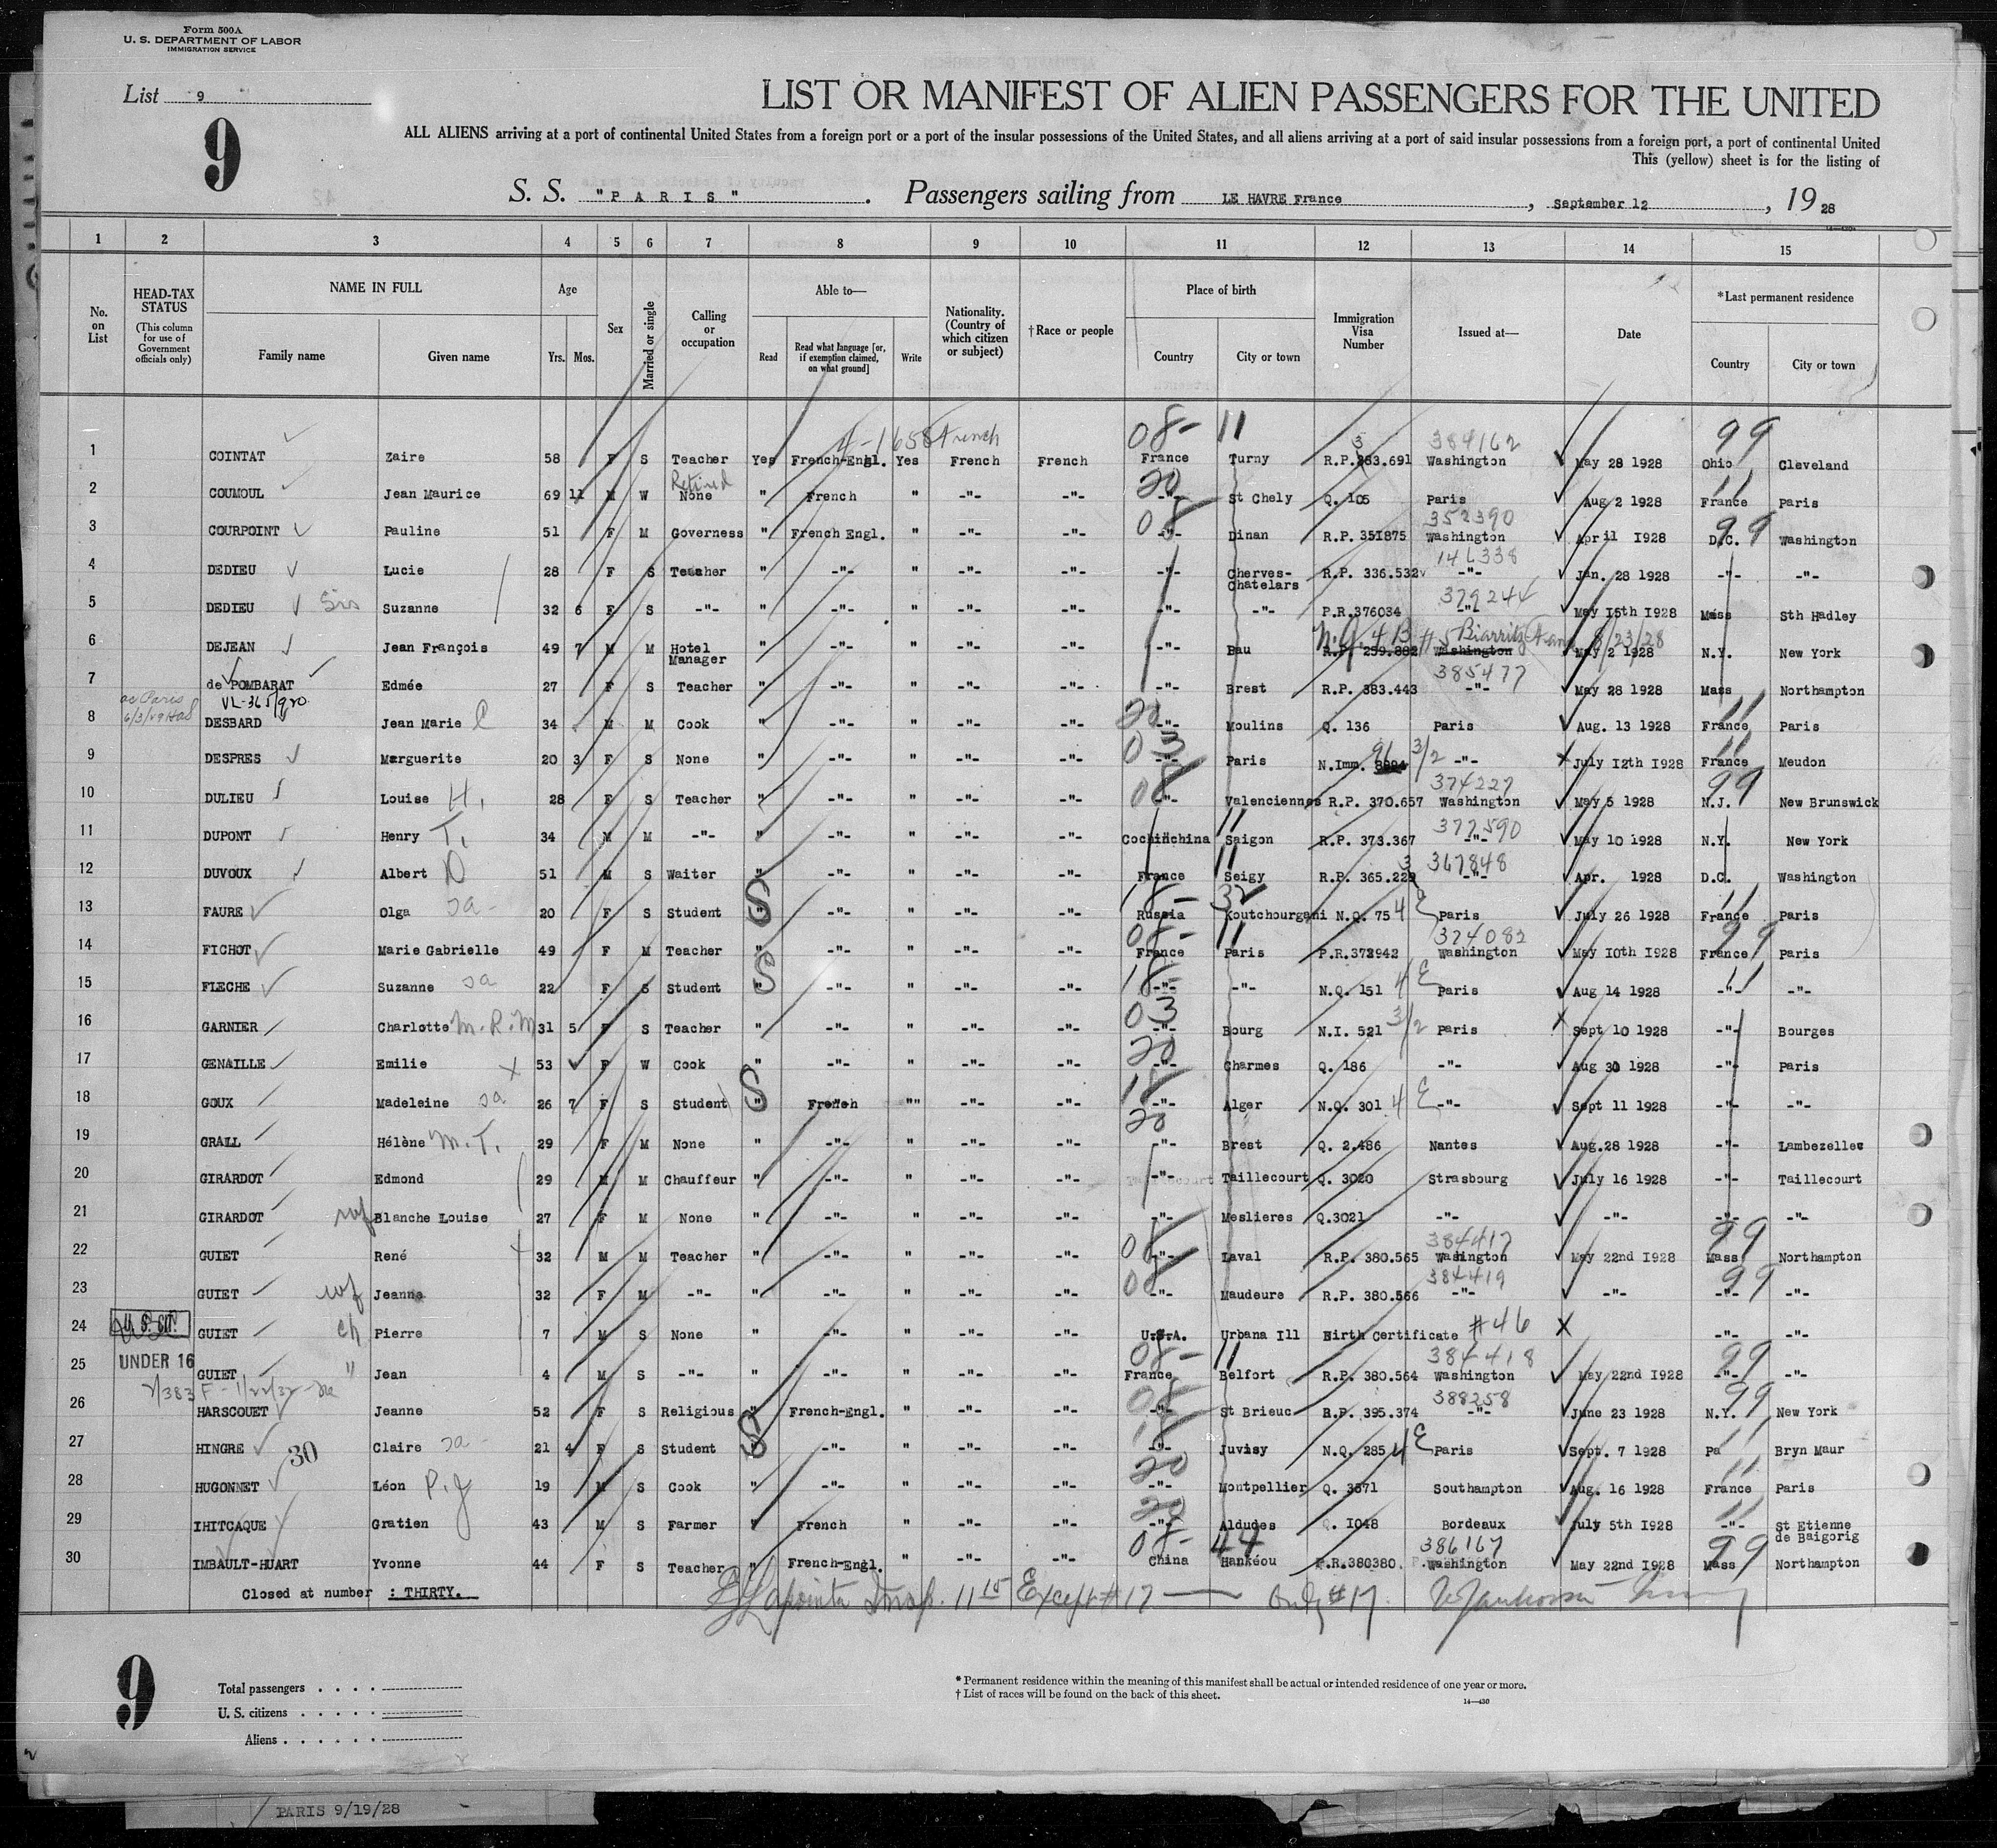 Form 500A
U. S. DEPARTMENT OF LABOR
IMMIGRATION SERVICE
List 9
9
LIST OR MANIFEST OF ALIEN PASSENGERS FOR THE UNITED
ALL ALIENS arriving at a port of continental United States from a foreign port or a port of the insular possessions of the United States, and all aliens arriving at a port of said insular possessions from a foreign port, a port of continental United
This (yellow) sheet is for the listing of
S. S. "PARIS". Passengers sailing from LE HAVRE France, September 12, 19 28
1 2 3 4 5 6 7 8 9 10 11 12 13 14 15
No. on List
HEAD-TAX STATUS (This column for use of Government officials only)
NAME IN FULL Family name Given name
Age Yrs. Mos.
Sex
Married or single
Calling or occupation
Able to— Read Read what language [or, if exemption claimed, on what ground] Write
Nationality. (Country of which citizen or subject)
†Race or people
Place of birth Country City or town
Immigration Visa Number
Issued at—
Date
*Last permanent residence Country City or town
4-1658 French 08- 11 3 384162 99
1 COINTAT Zaire 58 F S Teacher Yes French-Engl. Yes French French France Turny R.P.283.691 Washington May 28 1928 Ohio Cleveland
Retired 20 11
2 COUMOUL Jean Maurice 69 11 M W None " French " -"- -"- -"- St Chely Q. 105 Paris Aug 2 1928 France Paris
08 352390 99
3 COURPOINT Pauline 51 F M Governess " French Engl. " -"- -"- -"- Dinan R.P. 351875 Washington April 1928 D.C. Washington
146338
4 DEDIEU Lucie 28 F S Teacher " -"- " -"- -"- -"- Cherves-Chatelars R.P. 336.532 -"- Jan. 28 1928 -"- -"-
379244
5 DEDIEU Sis Suzanne 32 6 F S -"- " -"- " -"- -"- -"- -"- P.R.376034 -"- May 15th 1928 Mass Sth Hadley
N.Q. 413 #5 Biarritz 8/23/28
6 DEJEAN Jean François 49 7 M M Hotel Manager " -"- " -"- -"- -"- Bau R.P. 259.882 Washington May 2 1928 N.Y. New York
385477
7 de POMBARAT Edmée 27 F S Teacher " -"- " -"- -"- -"- Brest R.P. 383.443 -"- May 28 1928 Mass Northampton
VL-365/920 20 11
8 DESBARD Jean Marie 34 M M Cook " -"- " -"- -"- -"- Moulins Q. 136 Paris Aug. 13 1928 France Paris
03 91 3/2 11
9 DESPRES Marguerite 20 3 F S None " -"- " -"- -"- -"- Paris N.Imm. -"- July 12th 1928 France Meudon
08 374227 99
10 DULIEU Louise H. 28 F S Teacher " -"- " -"- -"- -"- Valenciennes R.P. 370.657 Washington May 5 1928 N.J. New Brunswick
11 377590
11 DUPONT Henry T. 34 M M -"- " -"- " -"- -"- Cochinchina Saigon R.P. 373.367 -"- May 10 1928 N.Y. New York
11 3 367848
12 DUVOUX Albert D 51 M S Waiter " -"- " -"- -"- France Seigy R.P. 365.229 -"- Apr. 1928 D.C. Washington
S 18- 32 11
13 FAURE Olga 20 F S Student " -"- " -"- -"- Russia Koutchourgani N.Q. 75 4 E Paris July 26 1928 France Paris
08- 11 374082 99
14 FICHOT Marie Gabrielle 49 F M Teacher " -"- " -"- -"- France Paris P.R.372942 Washington May 10th 1928 France Paris
S 18- 11
15 FLECHE Suzanne 22 F S Student " -"- " -"- -"- -"- -"- N.Q. 151 4 E Paris Aug 14 1928 -"- -"-
03 3/2
16 GARNIER Charlotte M.R.M 31 5 F S Teacher " -"- " -"- -"- -"- Bourg N.I. 521 Paris Sept 10 1928 -"- Bourges
20
17 GENAILLE Emilie 53 F W Cook " -"- " -"- -"- -"- Charmes Q. 186 -"- Aug 30 1928 -"- Paris
S 18
18 GOUX Madeleine 26 7 F S Student " French "" -"- -"- -"- Alger N.Q. 301 4 E -"- Sept 11 1928 -"- -"-
20
19 GRALL Hélène M.T. 29 F M None " -"- " -"- -"- -"- Brest Q. 2.486 Nantes Aug.28 1928 -"- Lambezellec
20 GIRARDOT Edmond 29 M M Chauffeur " -"- " -"- -"- -"- Taillecourt Q. 3020 Strasbourg July 16 1928 -"- Taillecourt
21 GIRARDOT wf Blanche Louise 27 F M None " -"- " -"- -"- -"- Meslieres Q.3021 -"- -"- -"- -"-
08 384417 99
22 GUIET René 32 M M Teacher " -"- " -"- -"- -"- Laval R.P. 380.565 Washington May 22nd 1928 Mass Northampton
08 384419 99
23 GUIET wf Jeanne 32 F M -"- " -"- " -"- -"- -"- Maudeure R.P. 380.566 -"- -"- -"- -"-
U. S. CIT.
24 GUIET ch Pierre 7 M S None " -"- " -"- -"- U.S.A. Urbana Ill Birth Certificate #46 -"- -"-
UNDER 16 08- 11 384418 99
25 GUIET " Jean 4 M S -"- " -"- " -"- -"- France Belfort R.P. 380.564 Washington May 22nd 1928 -"- -"-
08 388258 99
26 HARSCOUET Jeanne 52 F S Religious " French-Engl. " -"- -"- -"- St Brieuc R.P. 395.374 -"- June 23 1928 N.Y. New York
S 18 11
27 HINGRE 30 Claire 21 4 F S Student " -"- " -"- -"- -"- Juvisy N.Q. 285 4 E Paris Sept. 7 1928 Pa Bryn Maur
20 11
28 HUGONNET Léon P.J 19 M S Cook " -"- " -"- -"- -"- Montpellier Q. 3571 Southampton Aug. 16 1928 France Paris
20 11
29 IHITCAQUE Gratien 43 M S Farmer " French " -"- -"- -"- Aldudes Q. 1048 Bordeaux July 5th 1928 -"- St Etienne de Baigorig
08- 44 386167 99
30 IMBAULT-HUART Yvonne 44 F S Teacher " French-Engl. " -"- -"- China Hankéou P.R.380380. Washington May 22nd 1928 Mass Northampton
Closed at number : THIRTY.
Lapointe Insp. 11 15 Except #17 — Only #17
9
Total passengers . . . .
U. S. citizens . . . . .
Aliens . . . . . .
* Permanent residence within the meaning of this manifest shall be actual or intended residence of one year or more.
† List of races will be found on the back of this sheet.
14—430
PARIS 9/19/28